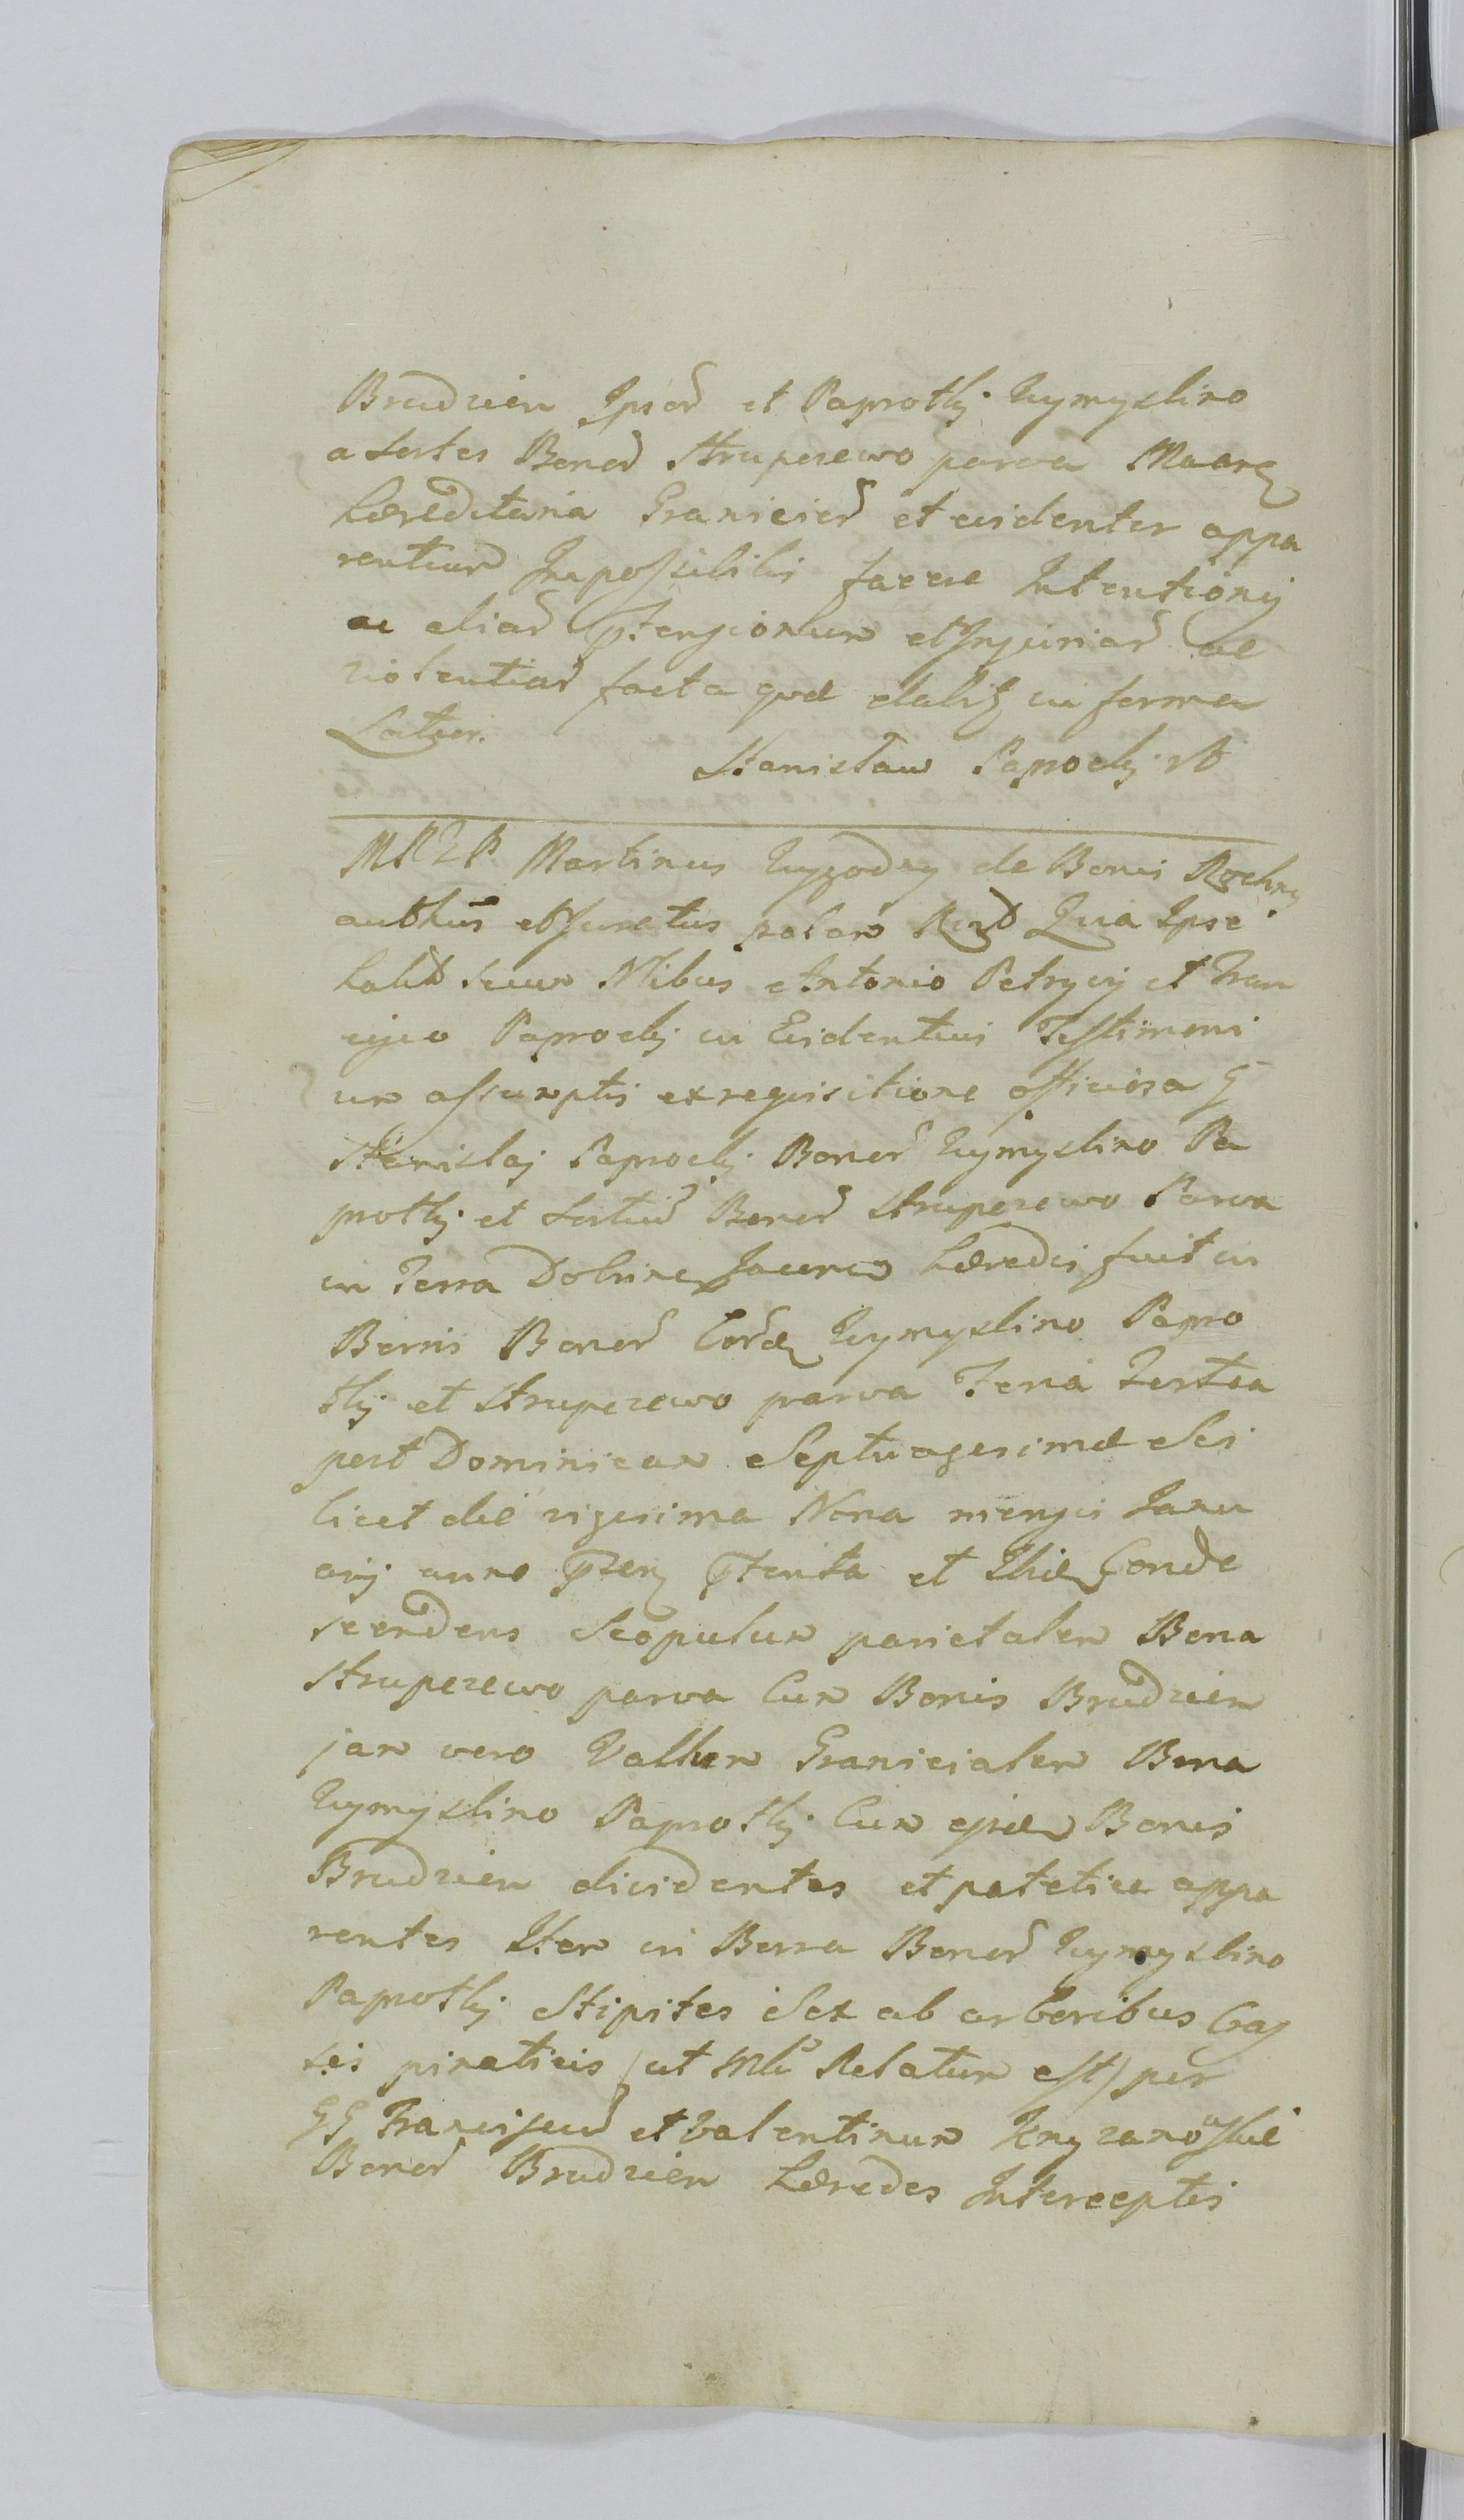 Brudzien Ipsor et Paprotki Wymyslino
a sortes Bonor Strupczewo parva Maara
hereditaria Granicier et evidenter appa
rentiur Impossibilis facere Intentionis
ac aliar ptensionum et Injuriar ac
violentiar facta qvae dabitz in forma
Latior.
Stanisław Paprocki
Martinus Wygodny de Bonis Rochny
authus et Juratus palam Quia Ipse
habit secum Nlibus Antonio Petrycy et Fran
cisco Paprocky in Evidentius Testimoni
um assumptis ex requisitione officiosa G
Stanislaj Paprocky Bonor Wymyslino Pa
protky et sortiu Bonor Strupczewo Parva
in Terra Dobrinen Jacen heredis fuit in
Bonis Bonor Wymyslino Papro
tky et Strupczewo parva Feria Tertia
post Dominicam Septuagesimae Sci
licet die vigesima Nona mensis Janu
arij anno pzen ptenta et Ibid Conde
scendens Scopulum parietalem Bona
Strupczewo parva Cum Bonis Brudzien
jam vero Vallum Granicialem Bona
Wymyslino Paprotky Cum ejsdem Bonis
Brudzien dividentes et patetice appa
rentes Item in Borra Bonor Wymyslino
Paprotky Stipites Sex ab arboribus Cras
sis pineticis (ut Relatum est) per
GG Franciscum et Valentinum Krzyzanoskie
Bonor Brudzien heredes Interceptis